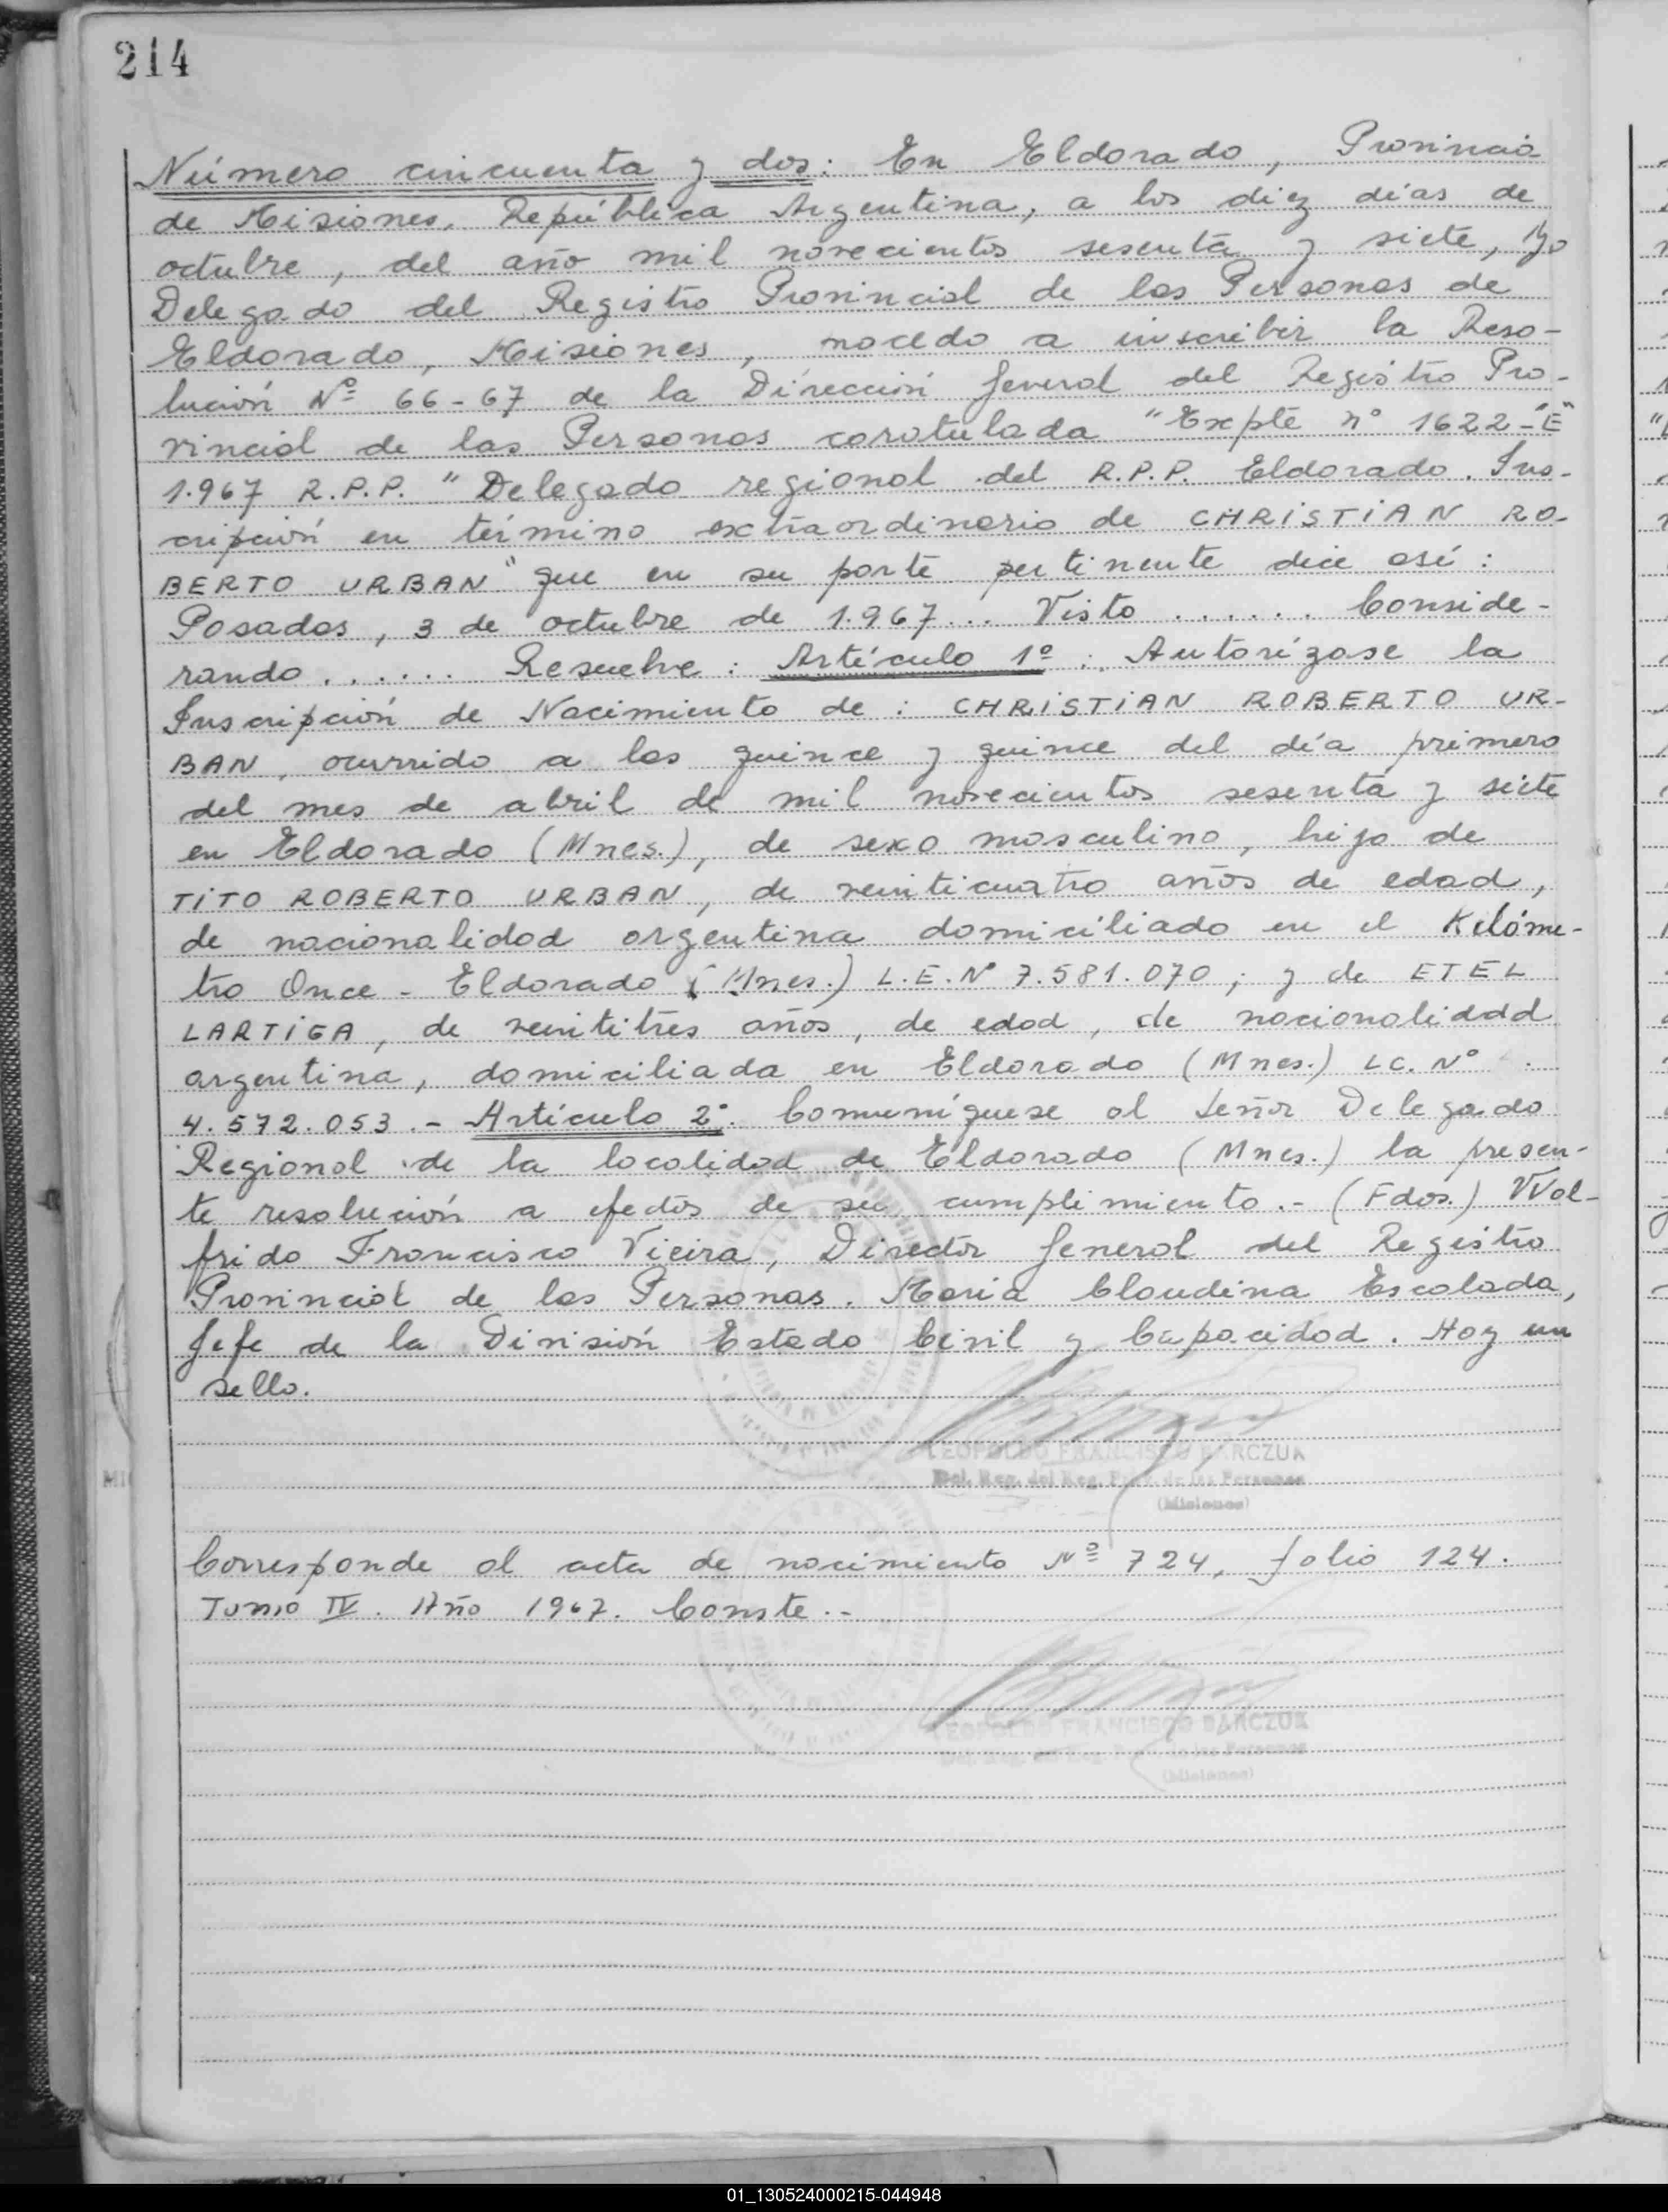 214
Número cincuenta y dos: En Eldorado, Provincia
de Misiones, República Argentina, a los diez días de
octubre, del año mil novecientos sesenta y siete, yo
Delegado del Registro Provincial de las Personas de
Eldorado, Misiones, procedo a inscribir la Reso-
lución Nº 66-67 de la Dirección General del Registro Pro-
vincial de las Personas carotulada "Expte nº 1622-"E"
1.967 R.P.P. "Delegado regional del R.P.P. Eldorado. Ins-
cripción en término extraordinario de CHRISTIAN RO-
BERTO URBAN" que en su parte pertinente dice así:
Posadas, 3 de octubre de 1.967... Visto ...... Conside-
rando ...... Resuelve: Artículo 1º: Autorízase la
Inscripción de Nacimiento de: CHRISTIAN ROBERTO UR-
BAN, ocurrido a las quince y quince del día primero
del mes de abril de mil novecientos sesenta y siete
en Eldorado (Mnes.), de sexo masculino, hijo de
TITO ROBERTO URBAN, de veinticuatro años de edad,
de nacionalidad argentina domiciliado en el Kilóme-
tro Once - Eldorado (Mnes.) L.E. Nº 7.581.070; y de ETEL
LARTIGA, de veintitrés años, de edad, de nacionalidad
argentina, domiciliada en Eldorado (Mnes.) LC. Nº
4.572.053.- Artículo 2º: Comuníquese al Señor Delegado
Regional de la localidad de Eldorado (Mnes.) la presen-
te resolución a efectos de su cumplimiento.- (Fdos.) Wol-
frido Francisco Vieira, Director General del Registro
Provincial de las Personas. María Claudina Escalada,
Jefe de la División Estado Civil y Capacidad. Hay un
sello.
LEOPOLDO FRANCISCO BARCZUK
Del. Reg. del Reg. Prov. de las Personas
(Misiones)
Corresponde al acta de nacimiento Nº 724, folio 124.
Tomo IV. Año 1967. Conste.-
LEOPOLDO FRANCISCO BARCZUK
Del. Reg. del Reg. Prov. de las Personas
(Misiones)
01_130524000215-044948